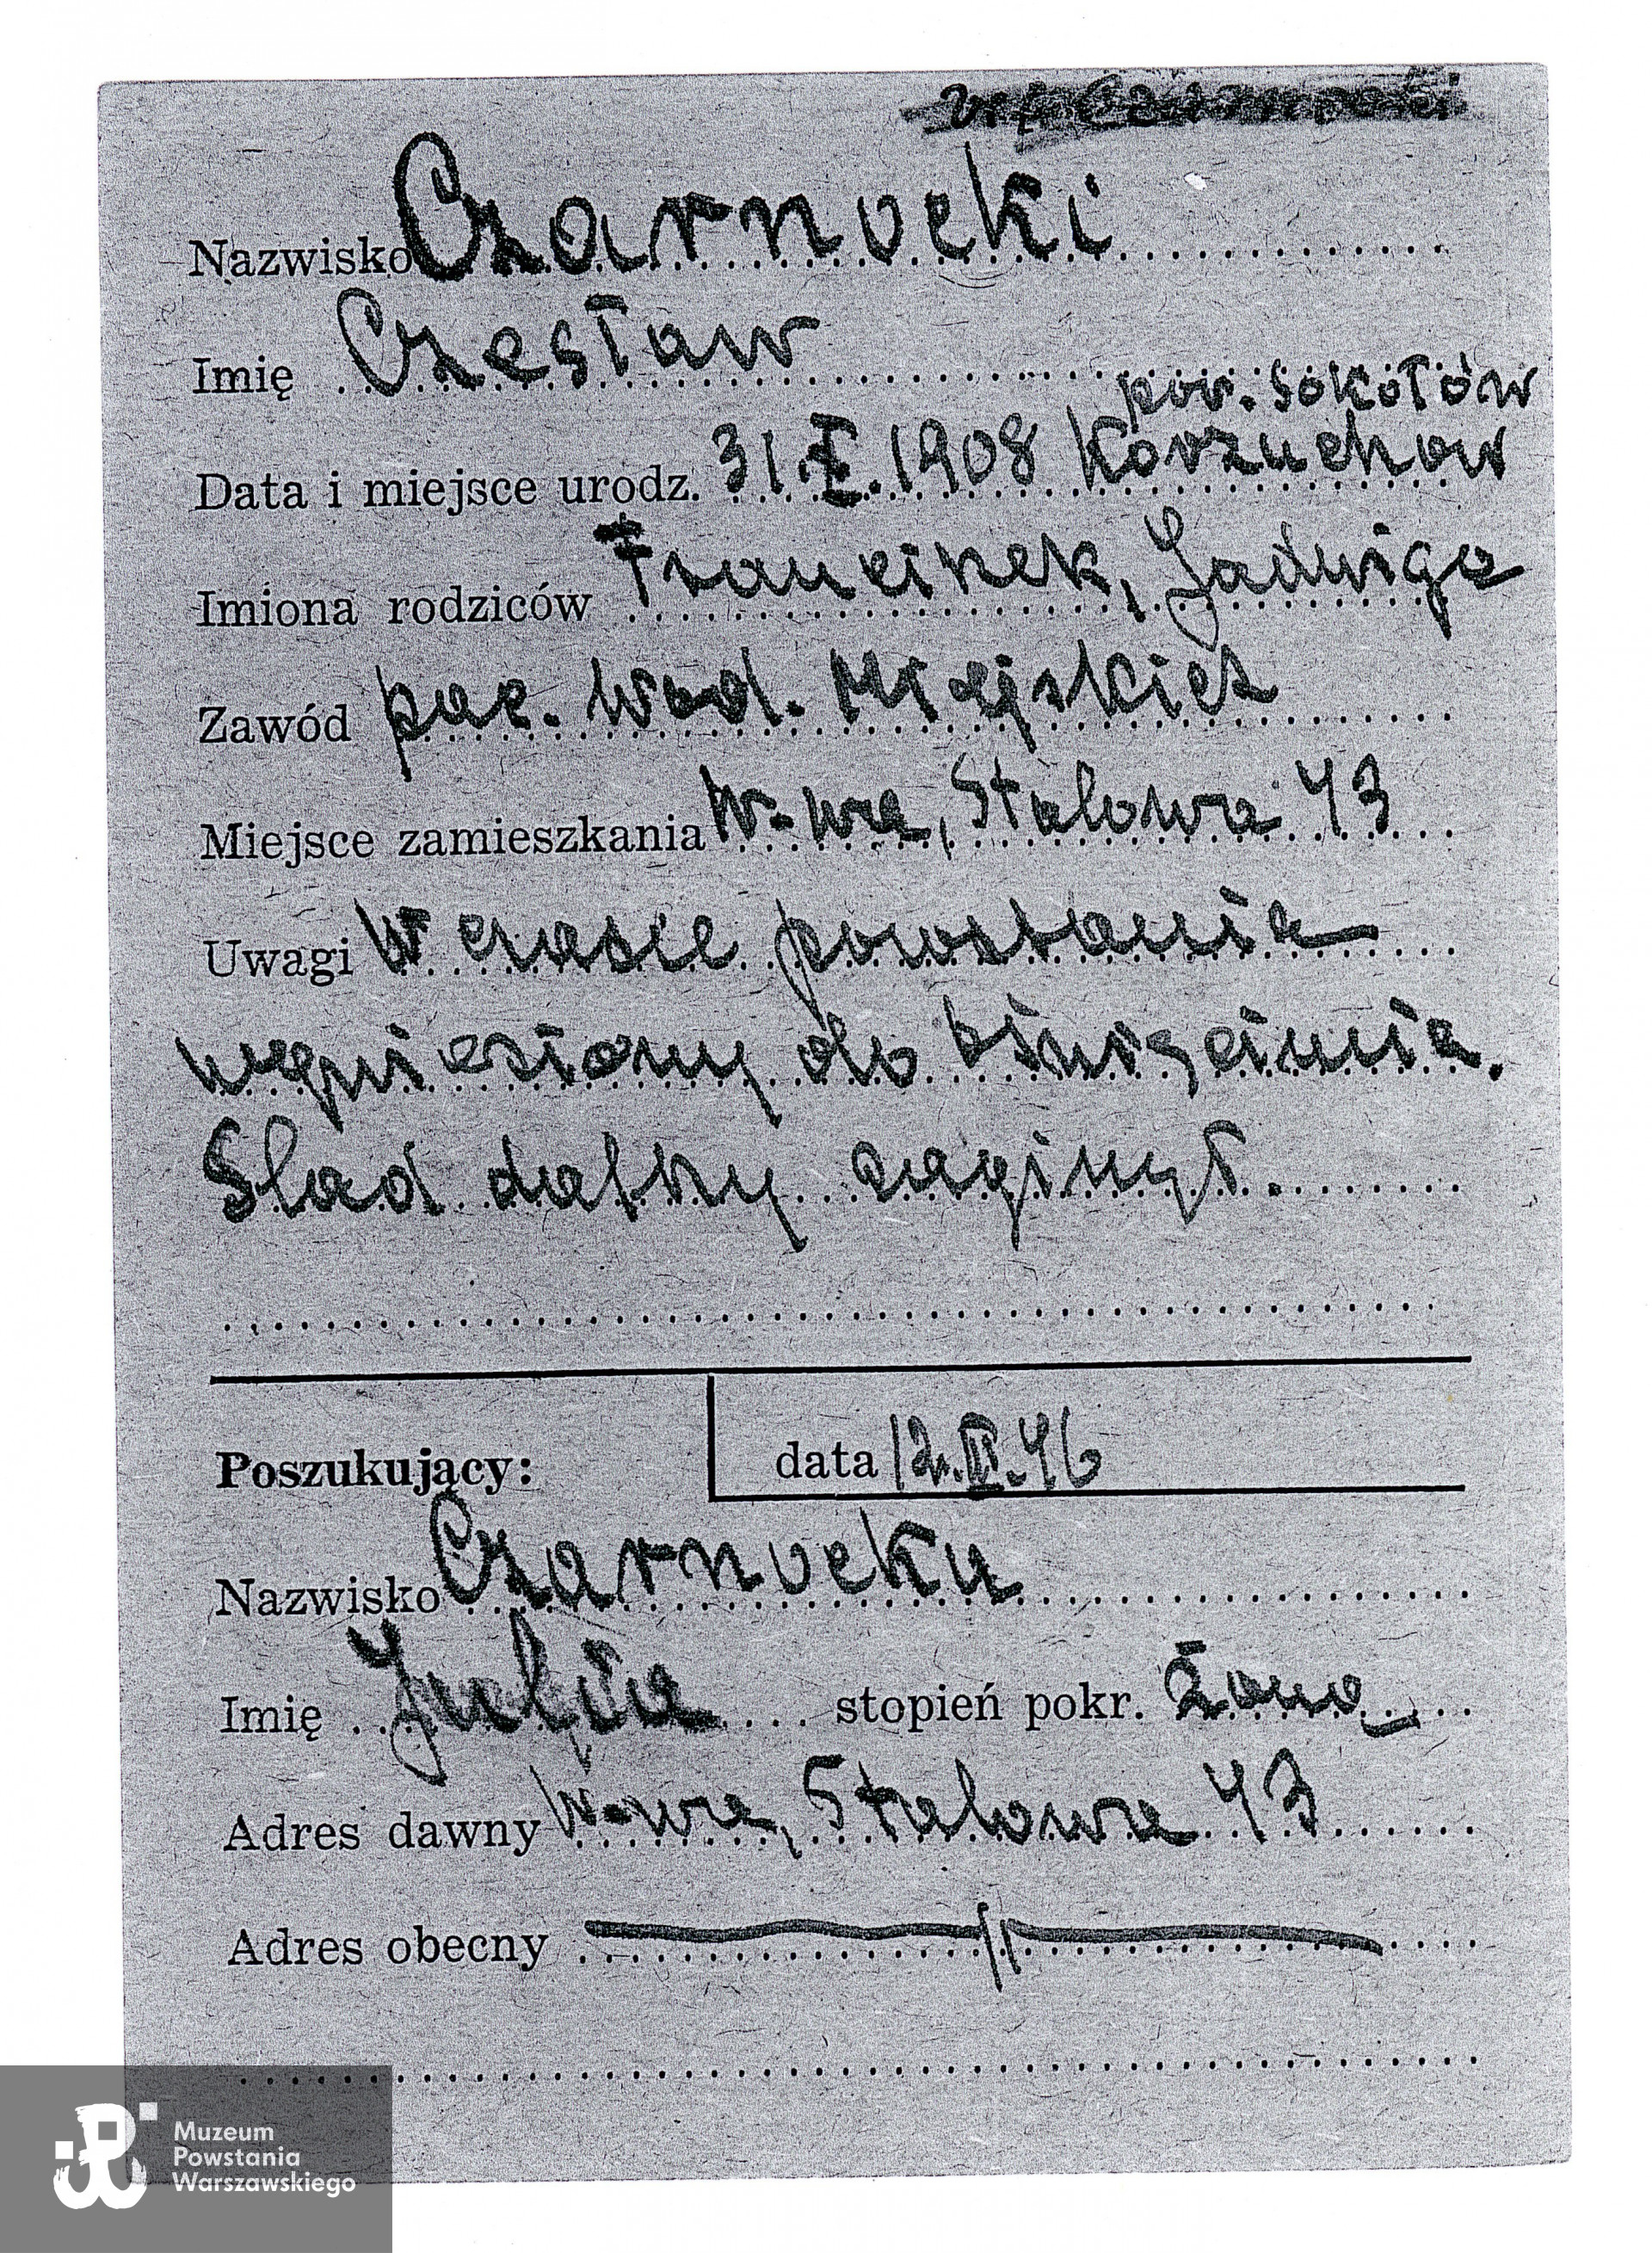 Nazwisko Czarnocki
Imię Czesław
pow. Sokołów
Data i miejsce urodz. 31.I.1908 Korzuchow
Imiona rodziców Franciszek, Jadwiga
Zawód prac. Wod. Miejskich
Miejsce zamieszkania W-wa, Stalowa 43
Uwagi W czasie powstania
wywieziony do Oświęcimia.
Slad dalszy zaginął.
Poszukujący: data 12.III.46
Nazwisko Czarnocka
Imię stopień pokr. żona
Adres dawny W-wa, Stalowa 43
Adres obecny
Muzeum
Powstania
Warszawskiego